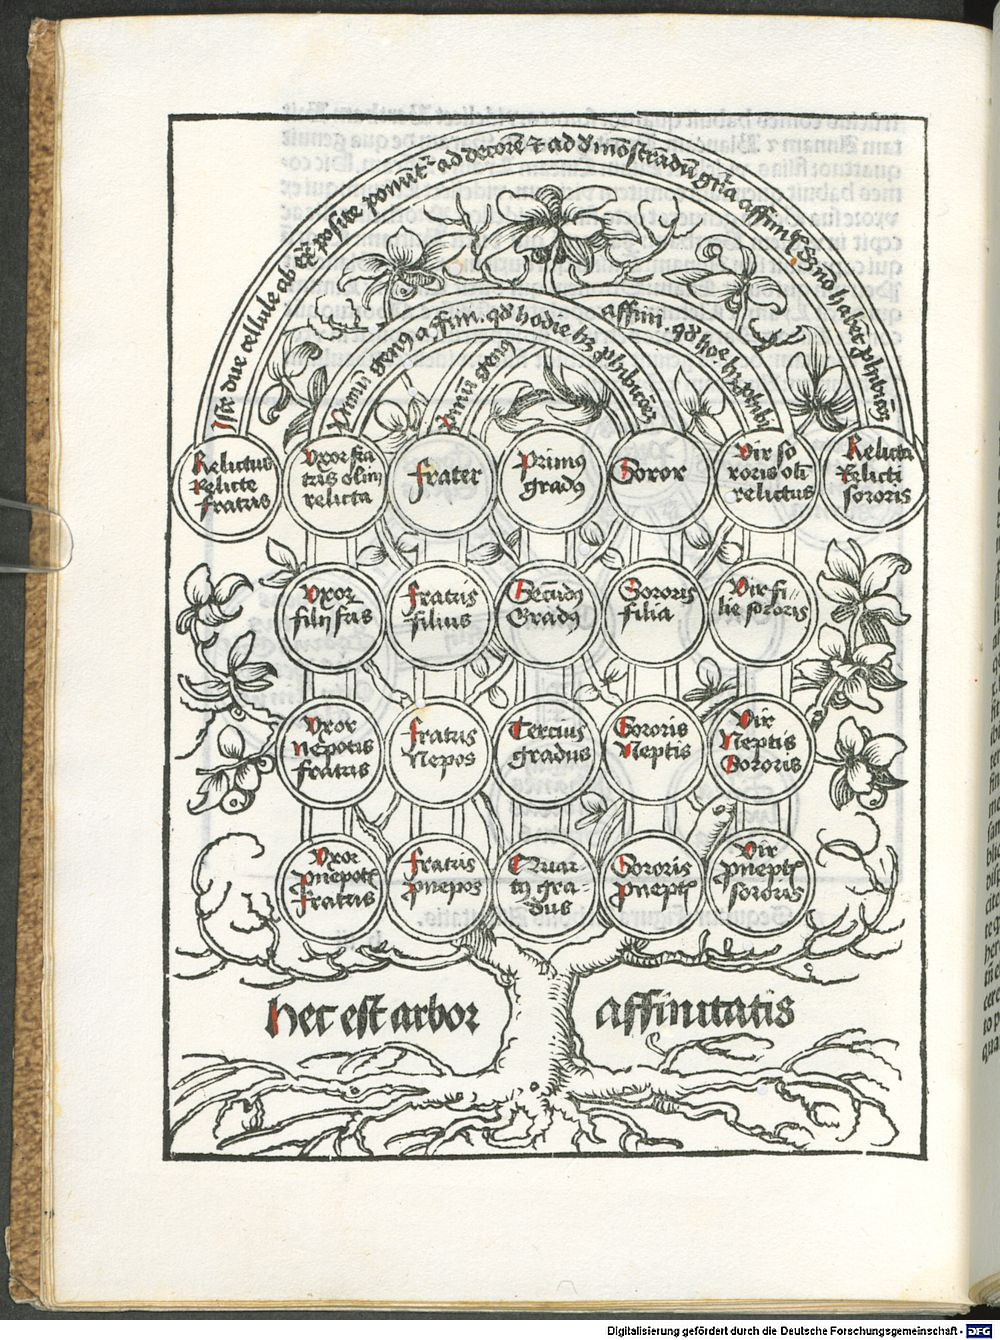 Iste due cellule ab ext posite ponunt᷑ ad decorē ⁊ ad dmōstradū gn̄a affini
Primū genꝰ affini. qd hodie hꝫ
Primū genꝰ affini. qd hodie hꝫ
Relictus
Relicte
fratris
Vxor fra
tris olim
relicta
frater
Primꝰ
gradꝰ
Soror
Vir so
roris oli
relictus
Relicta
Relicti
sororis
Vxor
filij fris
fratris
filius
Secūdꝰ
Gradꝰ
Sororis
filia
Vir fi-
lie sororis
Vxor
Nepotis
fratris
fratris
Nepos
Tercius
gradus
Sororis
Neptis
Vir
Neptis
Sororis
Vxor
Pnepotis
fratris
fratris
Pnepos
Quar
tꝰ gra-
dus
Sororis
Pneptis
Vir
Pneptis
sororis
Hec est arbor affinitatis
Digitalisierung gefördert durch die Deutsche Forschungsgemeinschaft - DFG